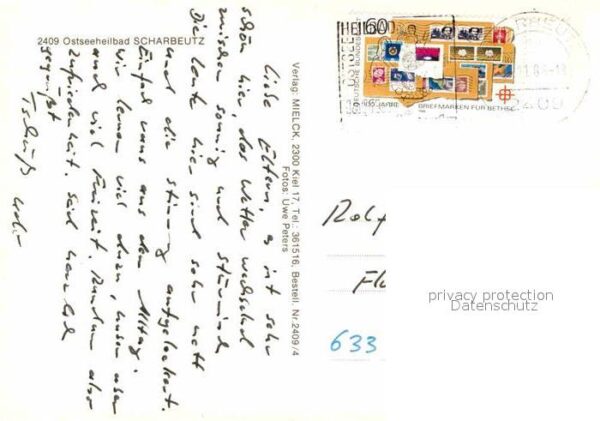 2409 Ostseeheilbad SCHARBEUTZ
Liebe Eltern, es ist sehr
schön hier, das Wetter wechselnd
zwischen sonnig und stürmisch
Die Leute hier sind sehr nett
und die Stimmung aufgelockert.
Einfach raus aus dem Alltag.
Wir lernen viel dazu, haben aber
auch viel Freizeit. Rundum also
Zufriedenheit. Seid herzlich
gegrüßt
Tschüß
Verlag: MIELCK, 2300 Kiel 17, Tel.: 361516, Bestell. Nr. 2409/4
Fotos: Uwe Peters
60
100 JAHRE
BRIEFMARKEN FÜR BETHEL
2409
Rolf
Fl
privacy protection
Datenschutz
633